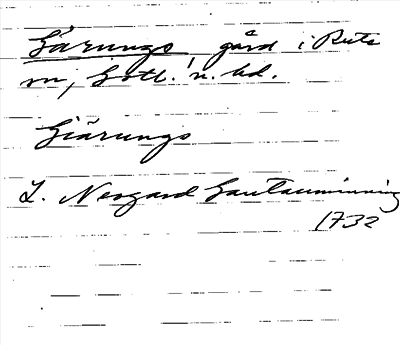 Gärungs gård i Rute
sn, Gotl. n. hd.
Giärungs
L. Neogard Gautauminning
1732